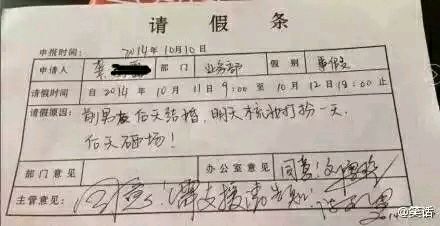 请假条
申报时间: 2014年10月10日
申请人 龚 部门 业务部 假别 事假
请假时间 自2014年10月11日9:00至10月12日18:00止
请假原因: 前男友后天结婚,明天梳妆打扮一天,
后天砸场!
部门意见 办公室意见 同意!
主管意见: 同意!需支援请告知!
@笑话